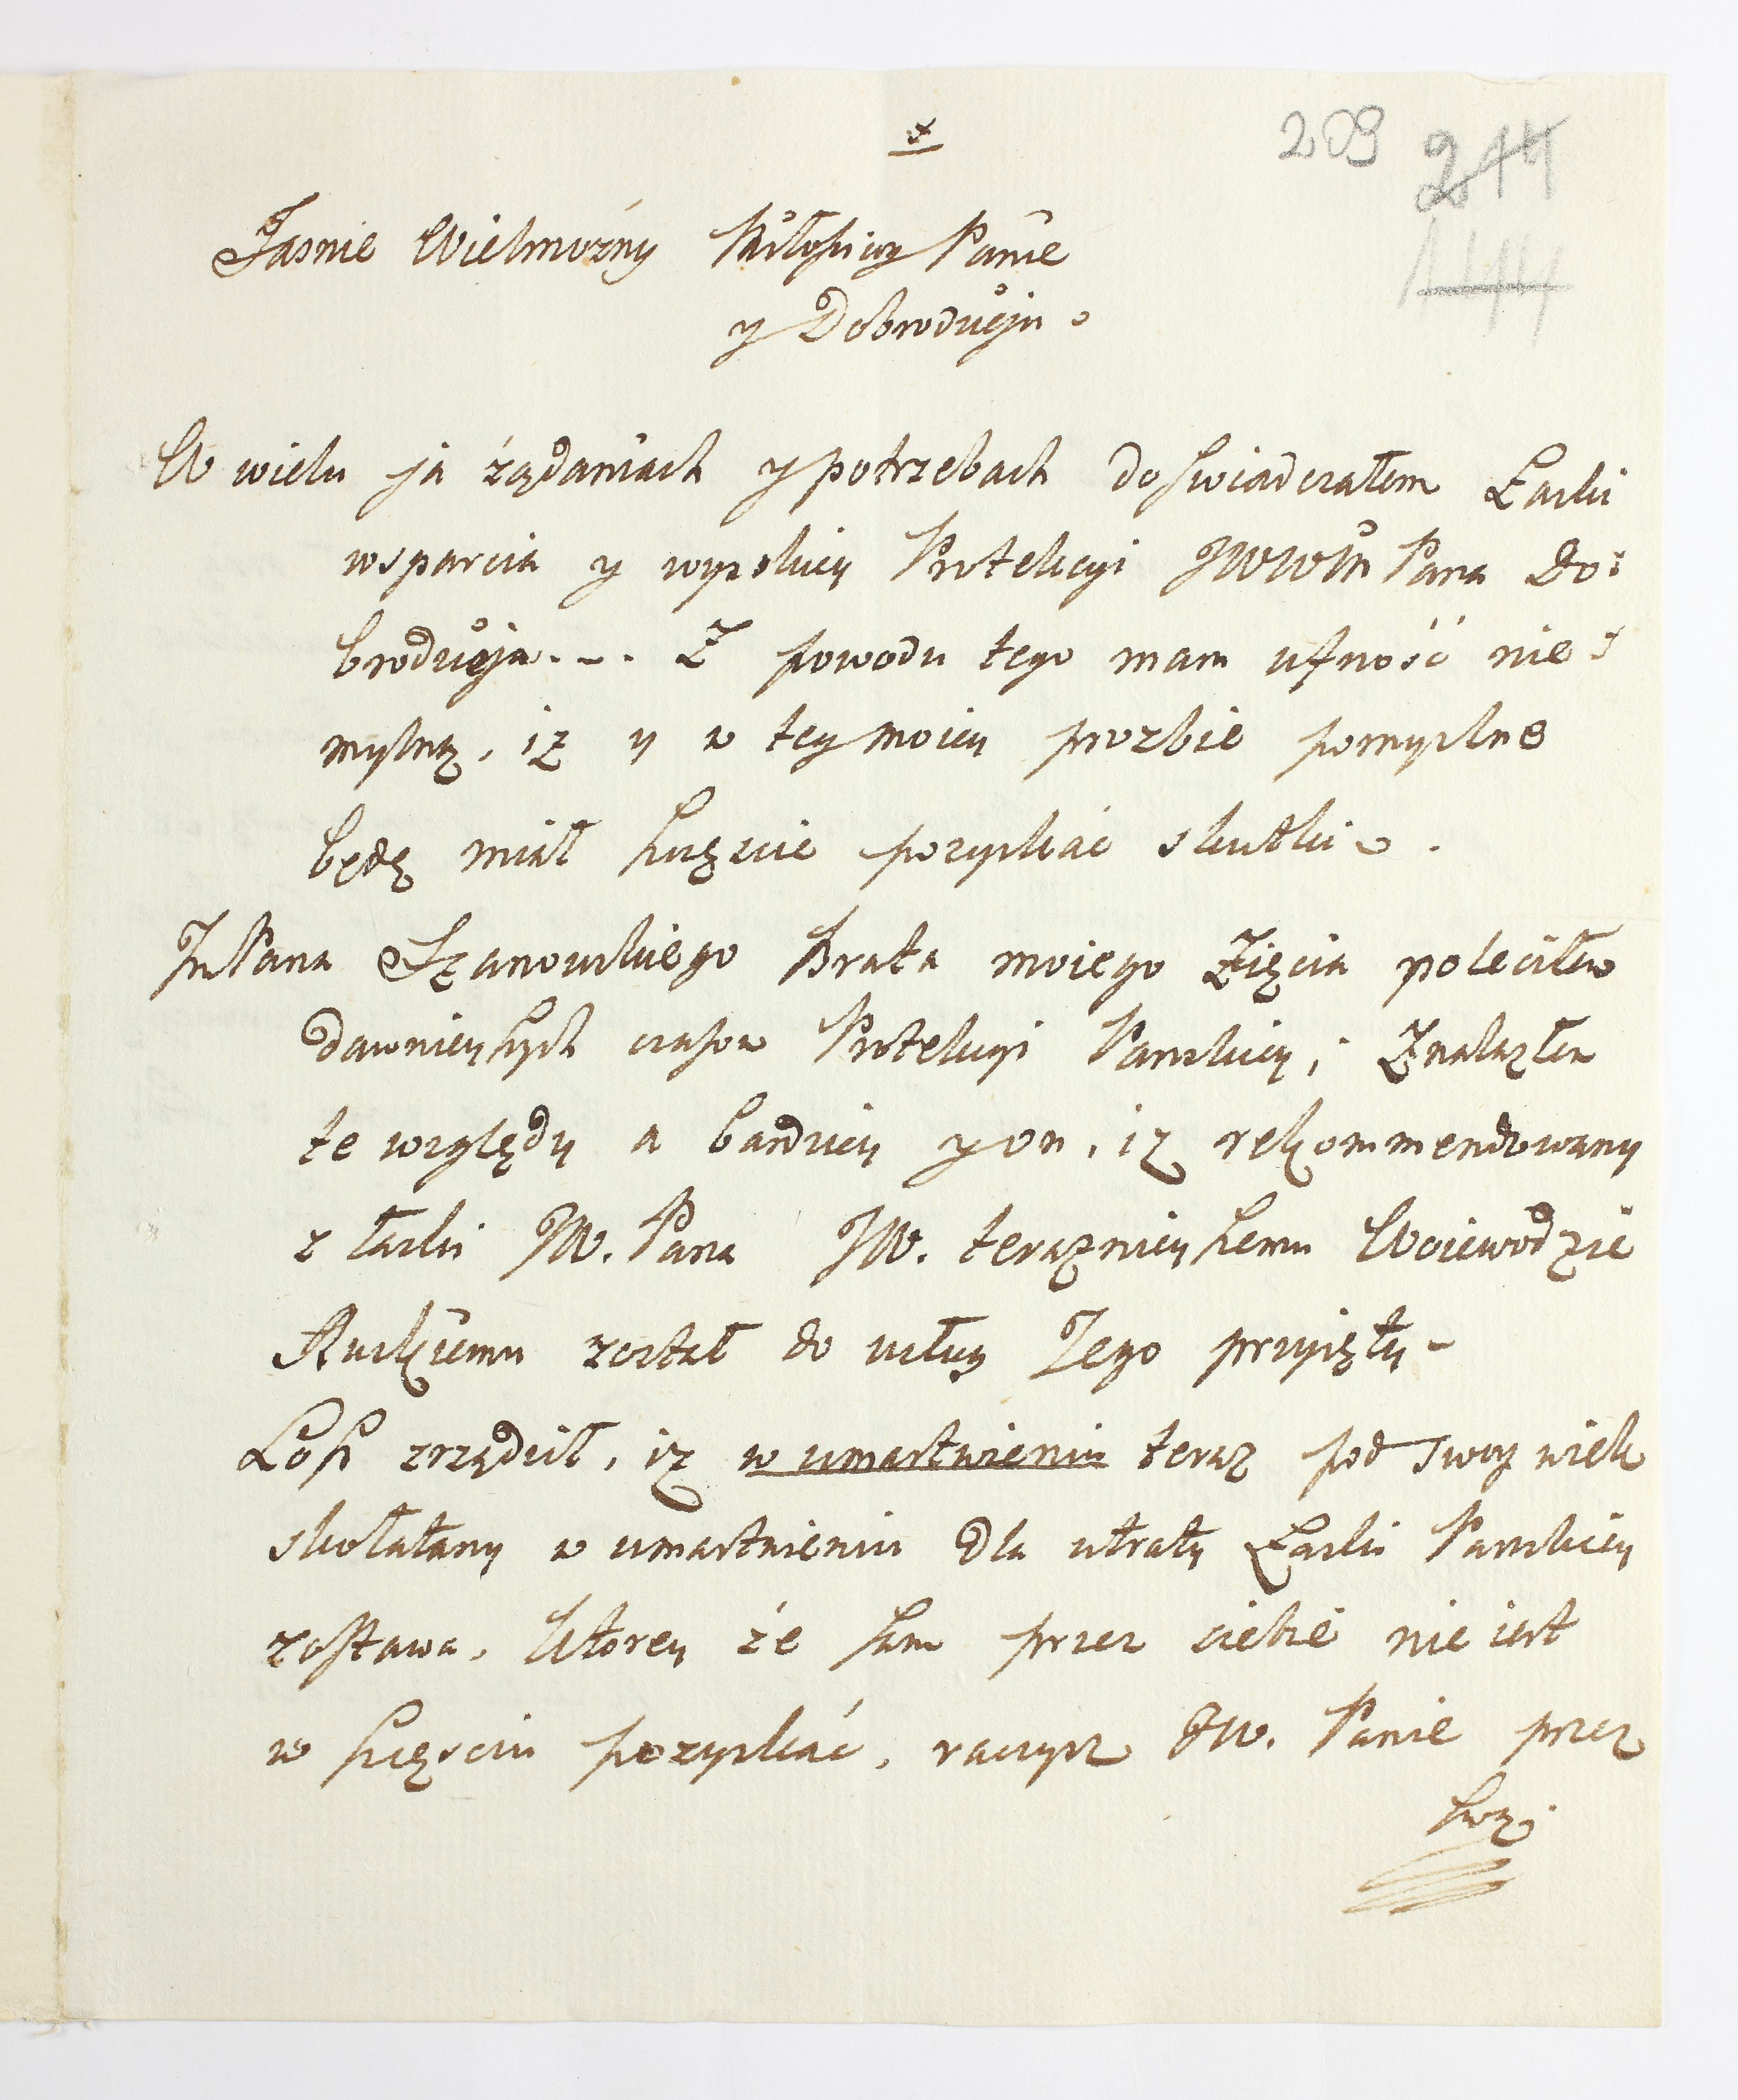 209 244
144
Jasnie Wielmozny Miłościwy Panie
y Dobrodzieju
W wielu ja żądaniach y potrzebach doświadczałem Łaski
wsparcia y wysokiey Protekcyi JWWM Pana Do:
brodzieja... Z powodu tego mam ufność nie:
mylną, iz y w tey moiey prozbie pomyslne
będę miał szczęscie pozyskać skutki.
JmPana Szanowskiego Brata moiego Zięcia poleciłem
dawnieyszych czasow Protekcyi Panskiey; Znalazłem
te względy a bardziey y on, iz rekommendowany
z łaski JW. Pana JW. teraznieyszemu Woiewodzie
Ruskiemu został do usług Jego przyięty
Loss zrządził, iz w umartwieniu teraz pod swoy wiek
skołatany w umartwieniu dla utraty Łaski Panskiey
zostawa. Ktorey że sam przez siebie nie iest
w szczęsciu pozyskać, raczysz JW. Panie przez
swą